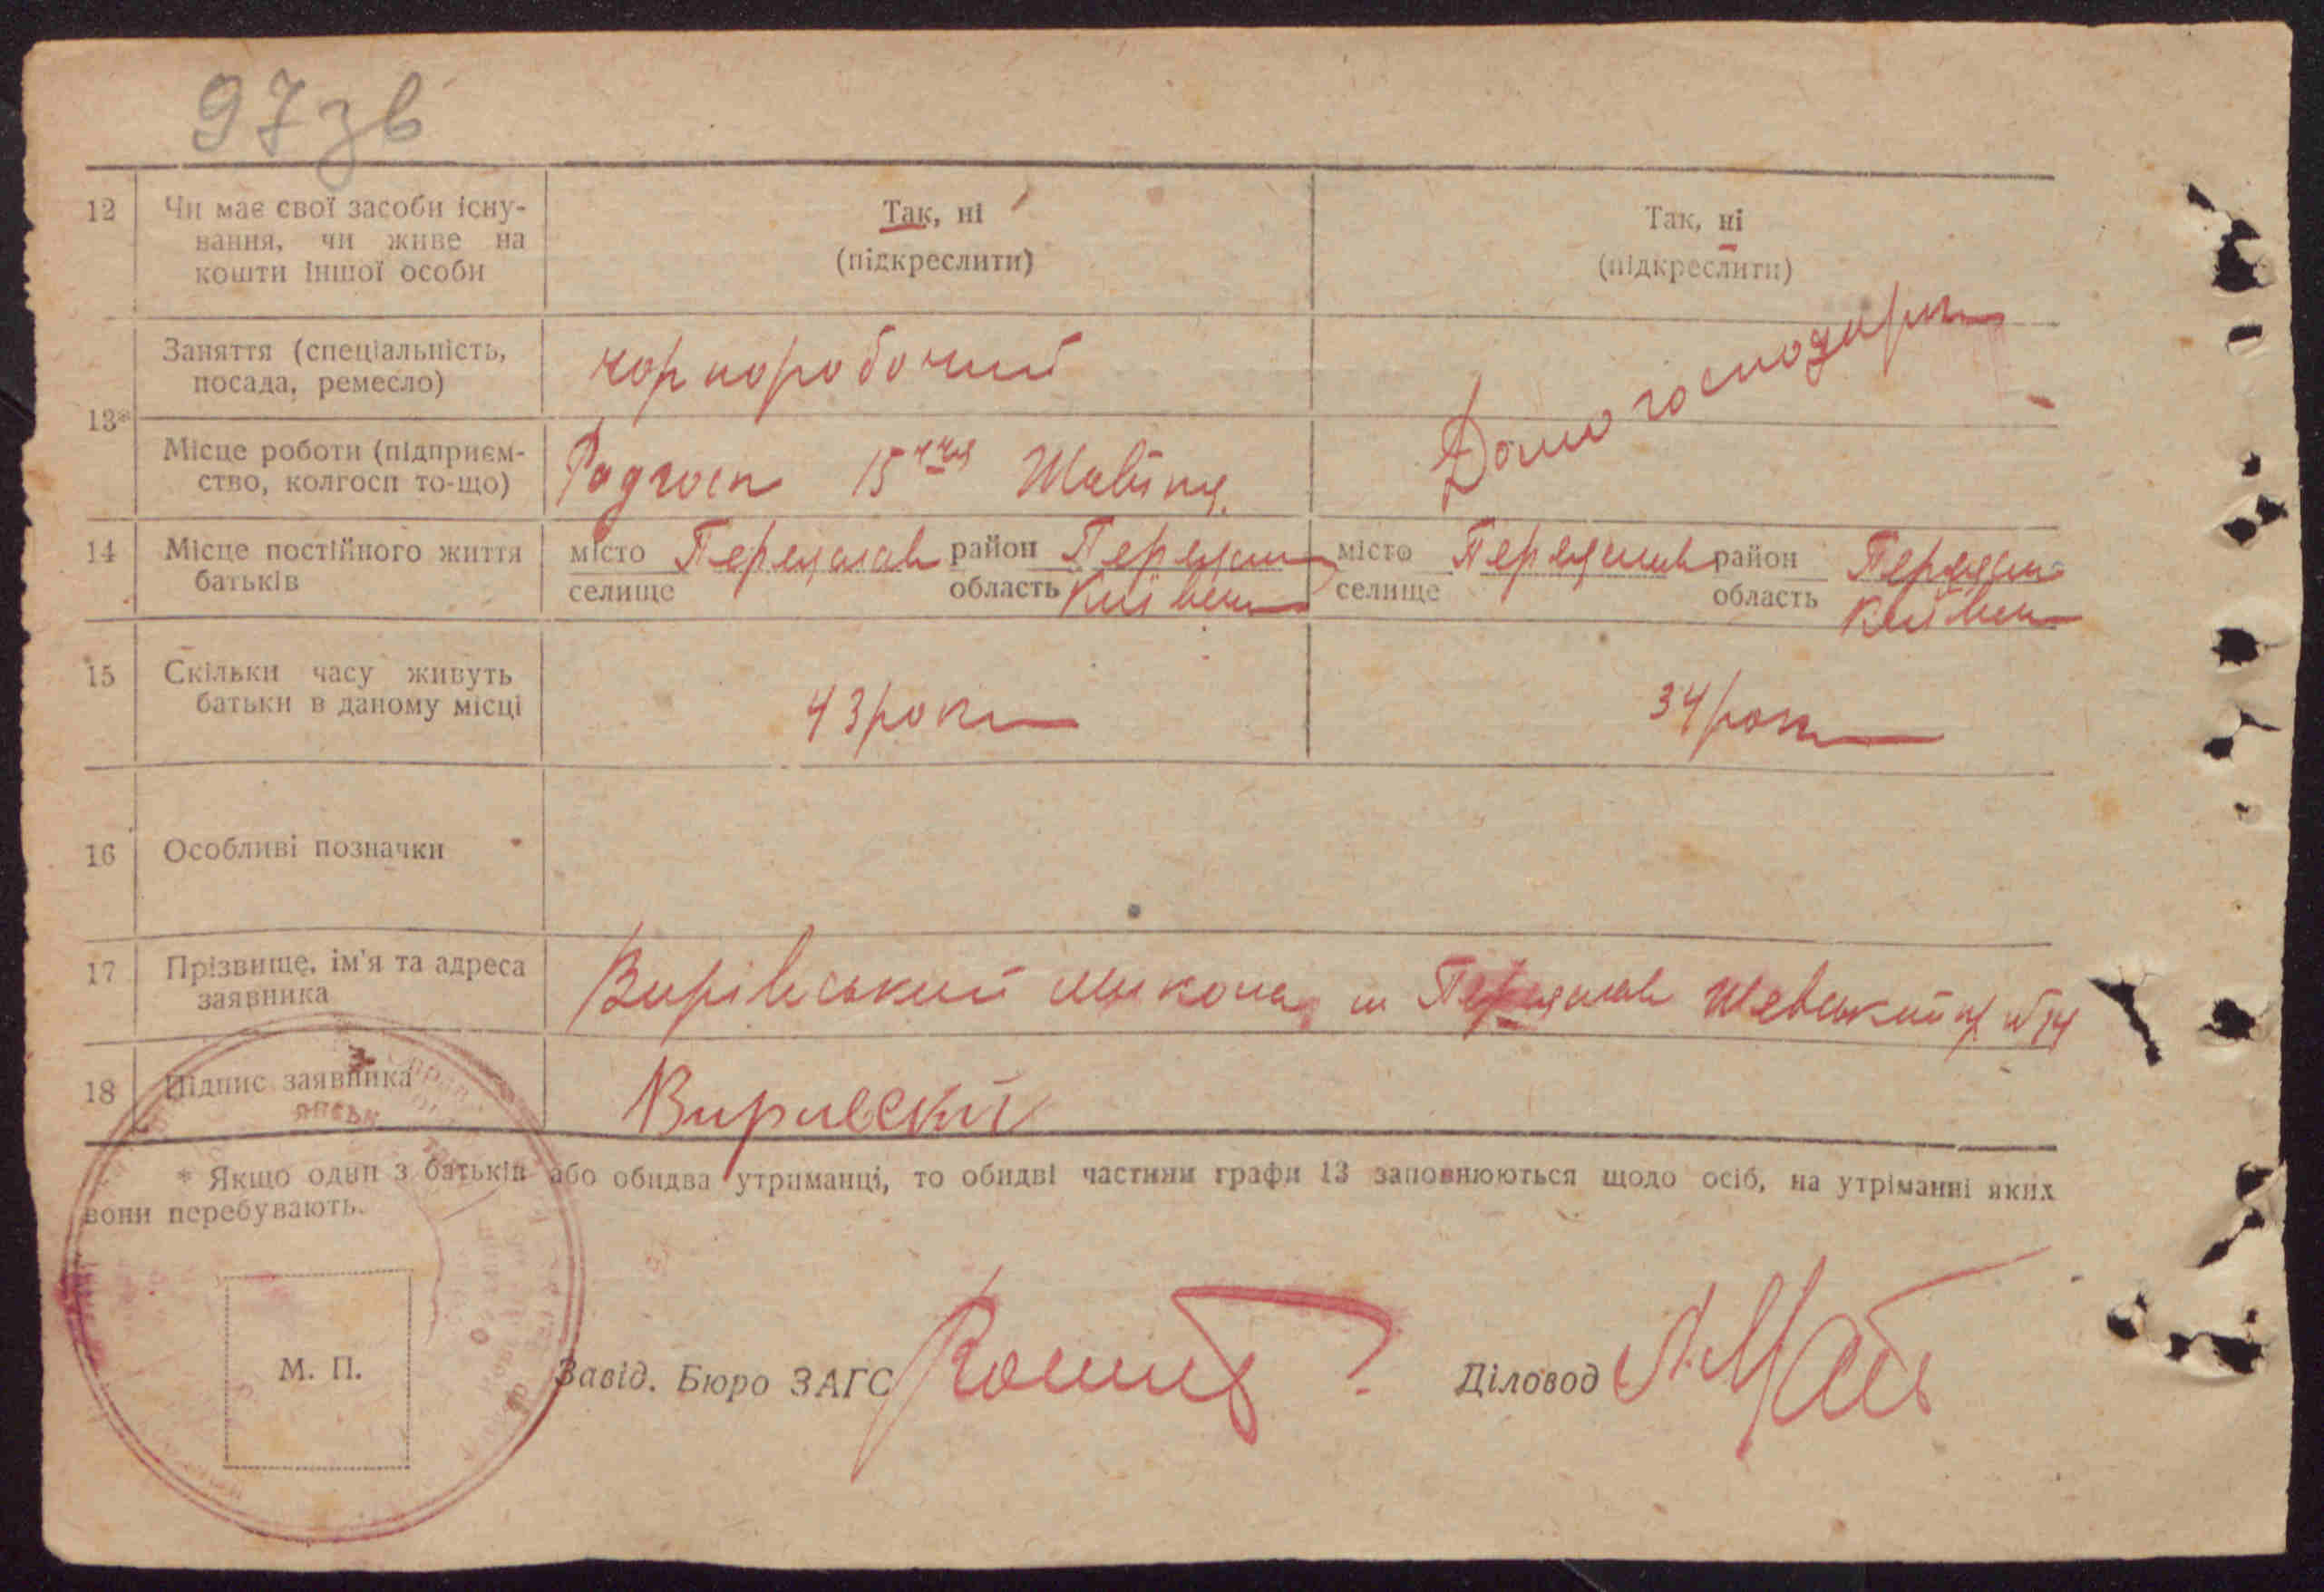 97 зв
12 Чи має свої засоби існу- Так, ні Так, ні
вання, чи живе на (підкреслити) (підкреслити)
кошти іншої особи
13* Заняття (спеціальність, чорноробочий Домогосподарка
посада, ремесло)
Місце роботи (підприєм- Радгосп 15 річчя
ство, колгосп то-що)
14 Місце постійного життя місто Переяслав район Переяслав місто Переяслав район Переяслав
батьків селище область Київськ селище область Київськ
15 Скільки часу живуть 43 роки 34 роки
батьки в даному місці
16 Особливі позначки
17 Прізвище, ім'я та адреса Вирівський Микола м Переяслав
заявника
18 Підпис заявника Виривский
* Якщо один з батьків або обидва утриманці, то обидві частини графи 13 заповнюються щодо осіб, на утріманні яких
вони перебувають.
М. П.
Завід. Бюро ЗАГС Діловод